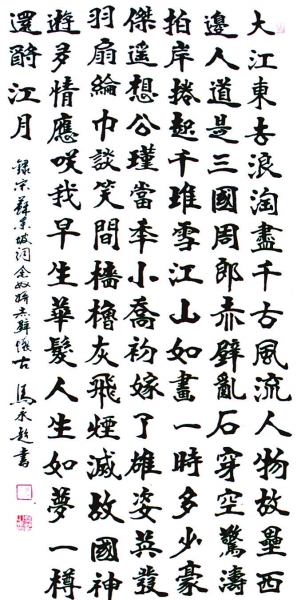 大江東去浪淘盡千古風流人物故壘西
邊人道是三國周郎赤壁亂石穿空驚濤
拍岸捲起千堆雪江山如畫一時多少豪
傑遙想公瑾當秊小喬初嫁了雄姿英發
羽扇綸巾談笑間檣櫓灰飛煙滅故國神
遊多情應咲我早生華髮人生如夢一樽
還酹江月
錄宋蘇東坡詞念奴嬌赤壁懷古 馬永超書